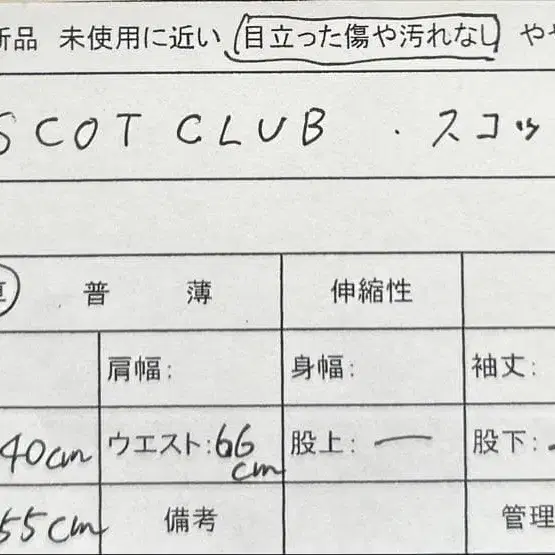 新品 未使用に近い 目立った傷や汚れなし やや
SCOT CLUB ・ スコッ
厚 普 薄 伸縮性
肩幅: 身幅: 袖丈:
40cm ウエスト:66cm 股上: ー 股下:
55cm 備考 管理